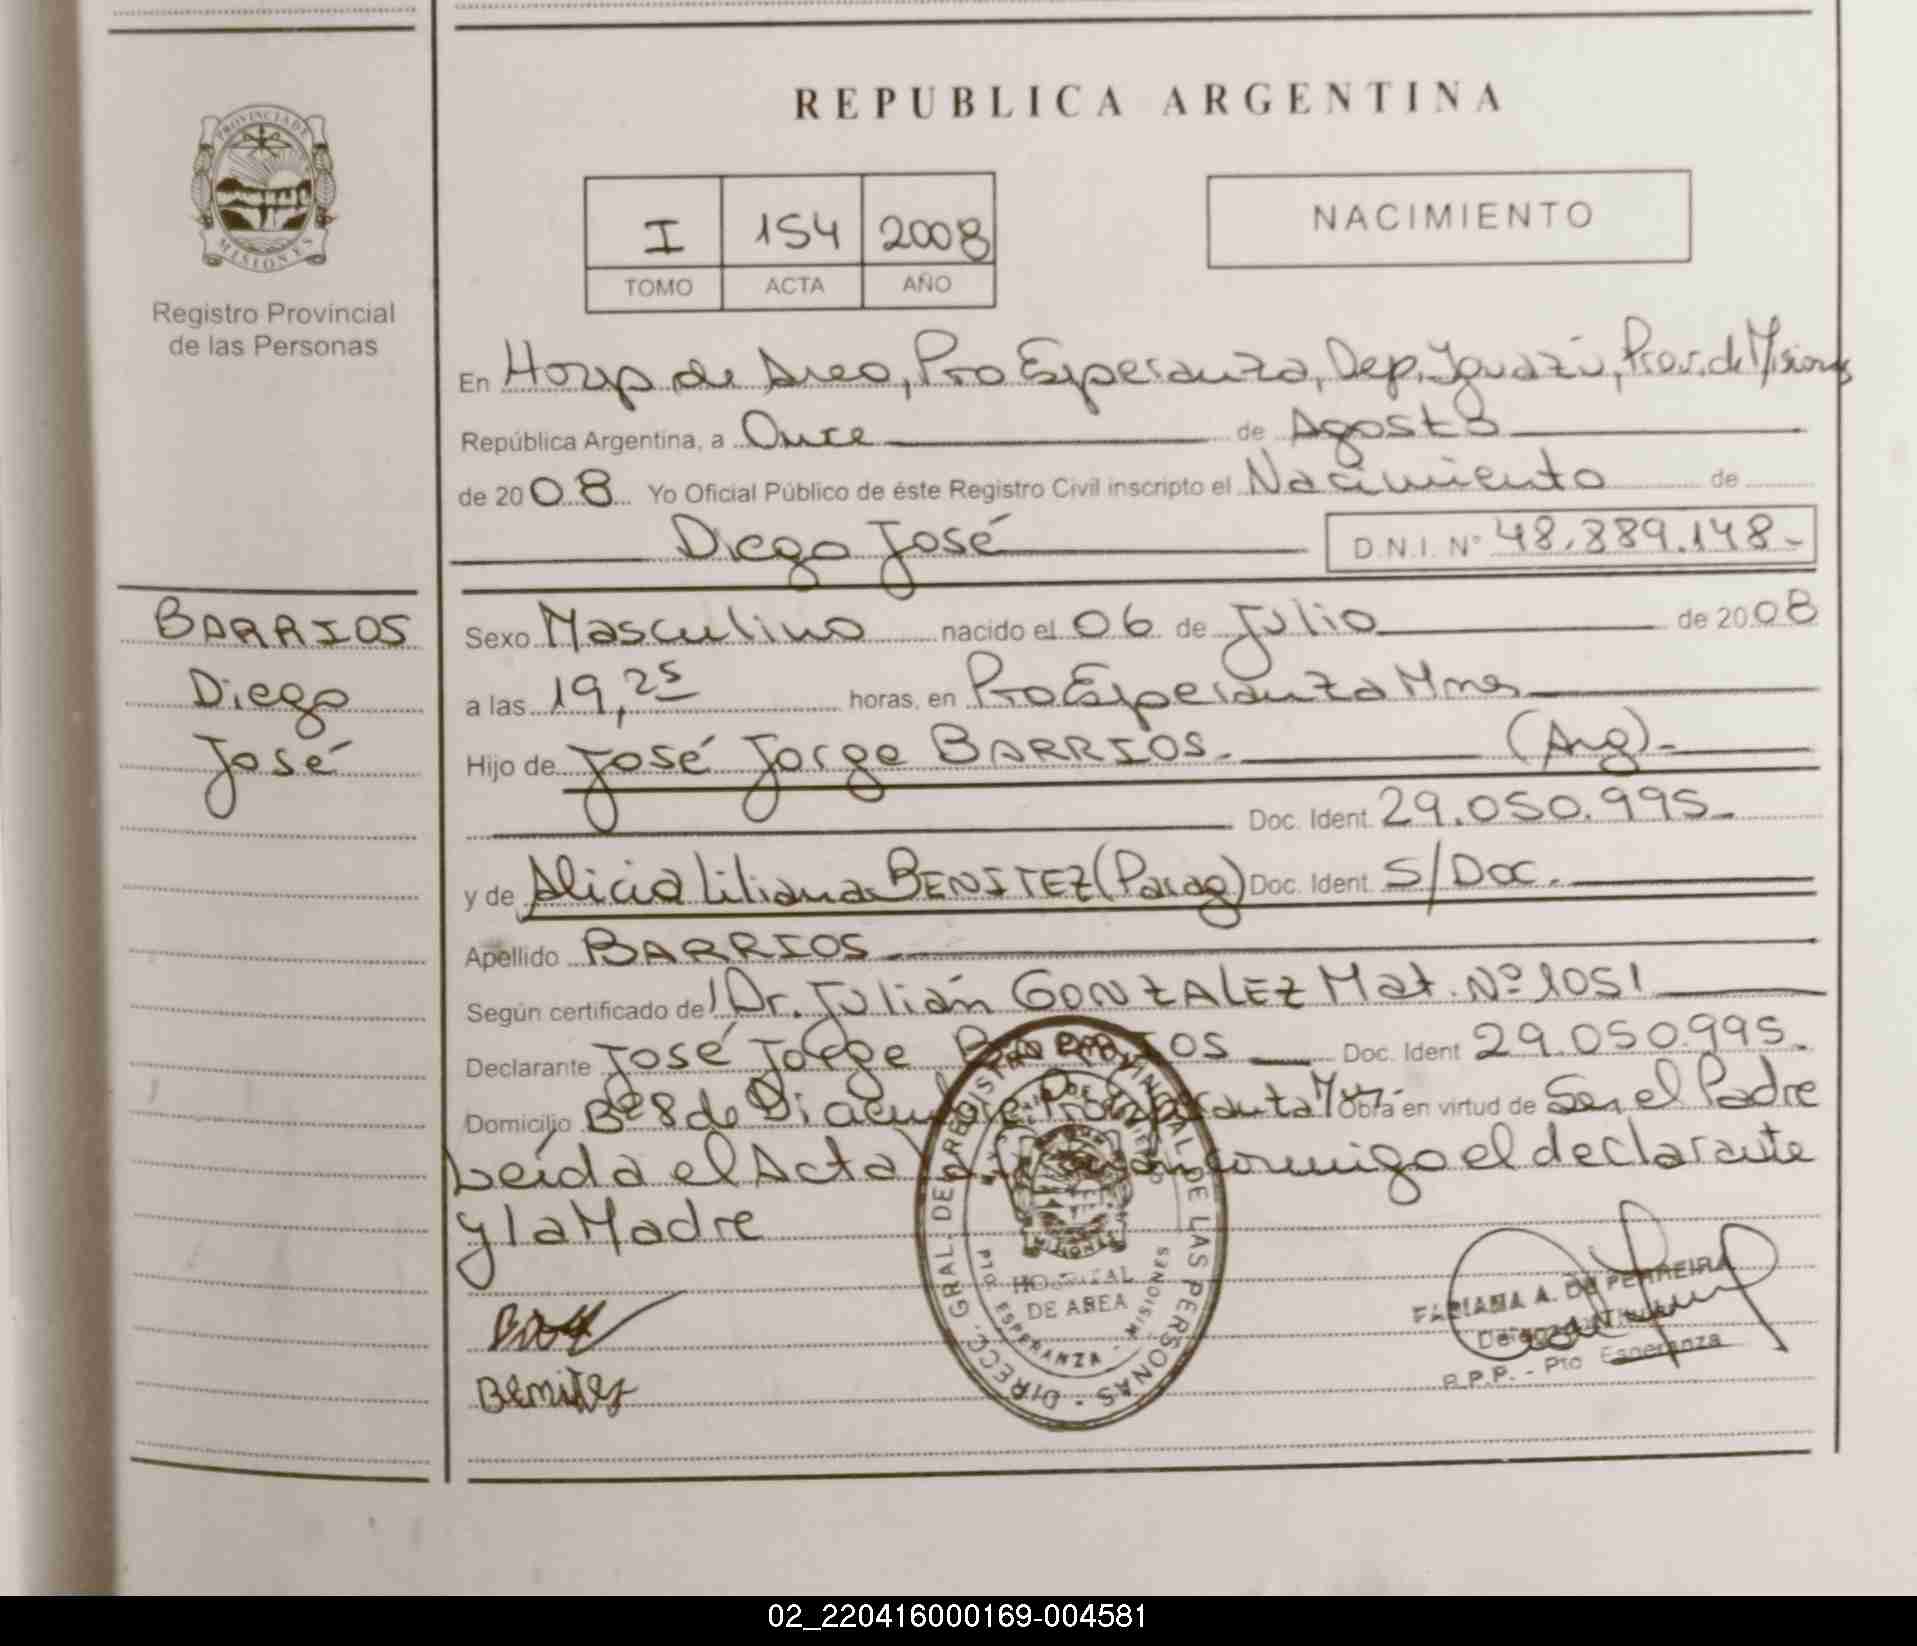 REPUBLICA ARGENTINA
PROVINCIA DE
MISIONES
Registro Provincial
de las Personas
I 154 2008
TOMO ACTA AÑO
NACIMIENTO
En Hosp de Area, Pto Esperanza, Dep. Iguazú, Prov. de Misiones
República Argentina, a Once de Agosto
de 2008 Yo Oficial Público de éste Registro Civil inscripto el Nacimiento de
Diego José D.N.I. Nº 48.889.148-
BARRIOS
Diego
José
Sexo Masculino nacido el 06 de Julio de 2008
a las 19,25 horas, en Pto Esperanza Mnes
Hijo de José Jorge BARRIOS.- (Arg)-
Doc. Ident. 29.050.995-
y de Alicia Liliana BENITEZ (Parag) Doc. Ident. S/Doc.
Apellido BARRIOS
Según certificado de Dr. Julián GONZALEZ Mat. Nº 1051
Declarante José Jorge BARRIOS Doc. Ident 29.050.995-
Domicilio Bº 8 de Diciembre Pto Esperanza Obra en virtud de Ser el Padre
Leída el Acta conmigo el declarante
y la Madre
DIRECC. GRAL. DEL REGISTRO PROVINCIAL DE LAS PERSONAS
MISIONES
HOSPITAL
DE AREA
PTO. ESPERANZA - MISIONES
Benitez
FABIANA A. DE FERREIRA
R.P.P. - Pto Esperanza
02_220416000169-004581